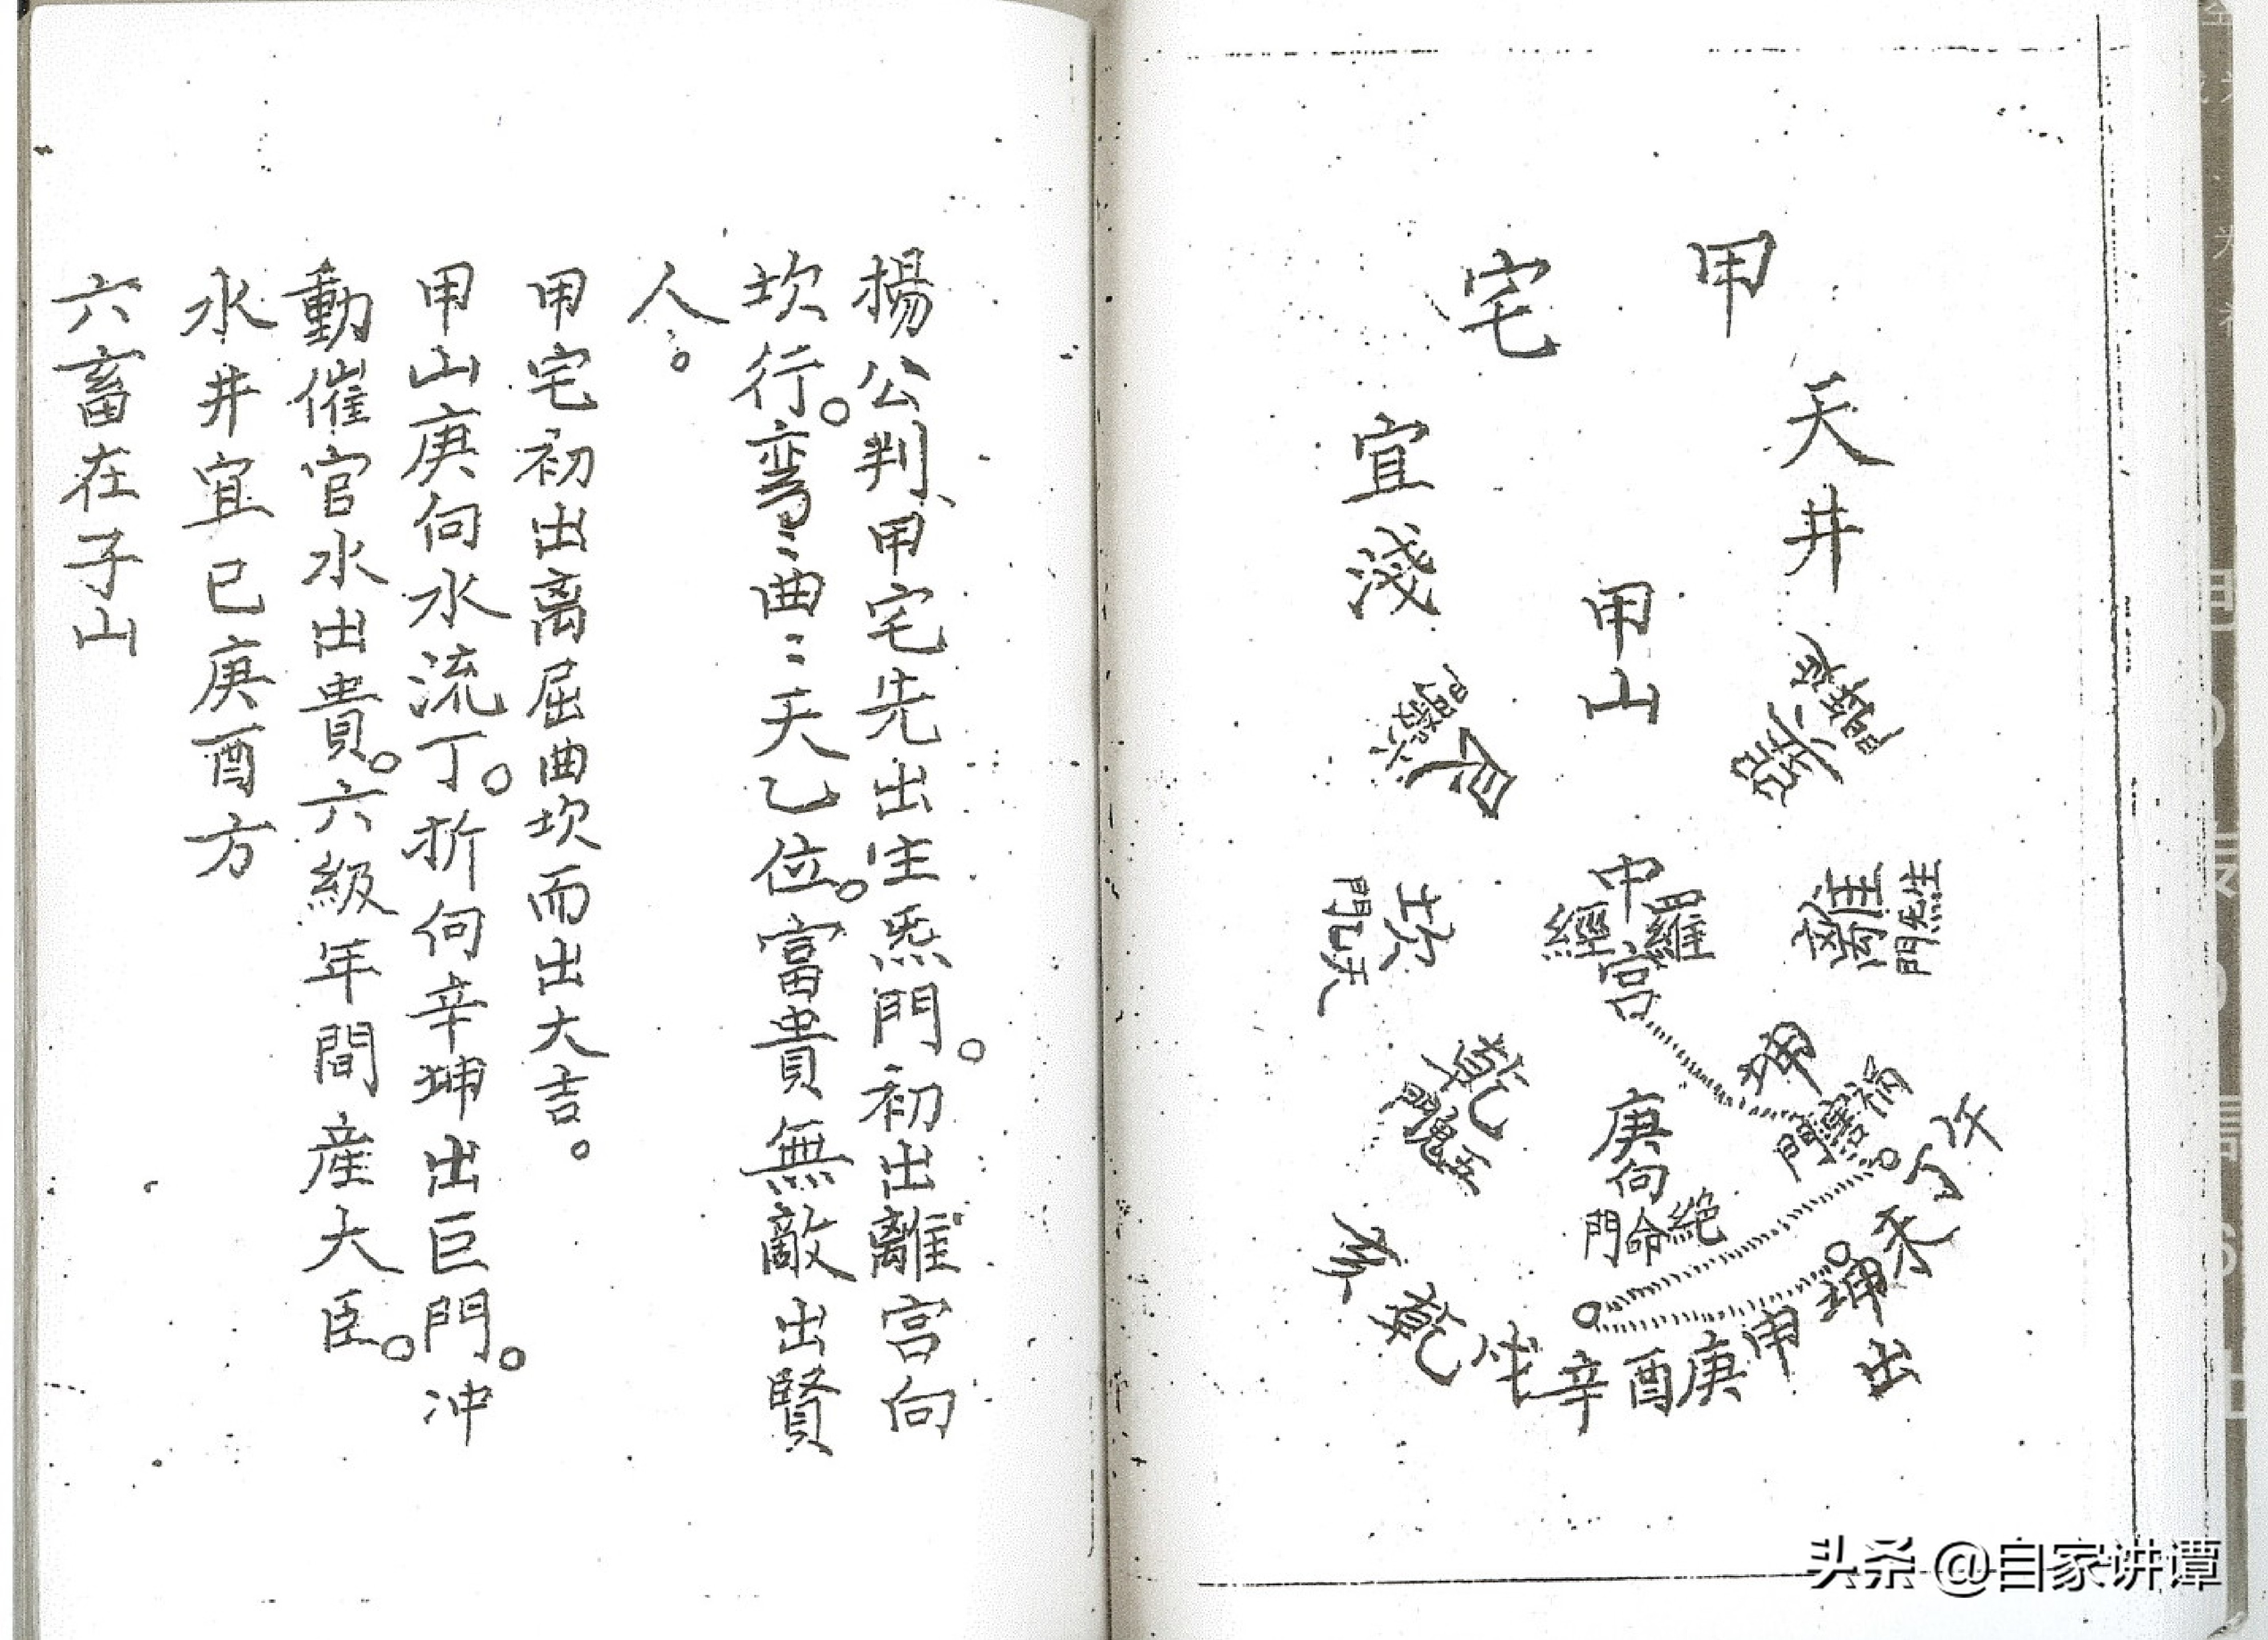 甲宅
天井
宜淺
甲山
巽
艮
六煞門
離
生炁門
坎
天乙門
中宮
羅經
坤
禍害門
乾
五鬼門
庚向
絕命門
午丁未坤申庚酉辛戌乾亥
出
揚公判、甲宅先出生炁門。初出離宮向
坎行。弯〻曲〻天乙位。富貴無敵出賢
人。
甲宅初出离屈曲坎而出大吉。
甲山庚向水流丁。折向辛坤出巨門。冲
動催官水出貴。六級年間産大臣。
水井宜巳庚酉方
六畜在子山
头条 @自家讲谭